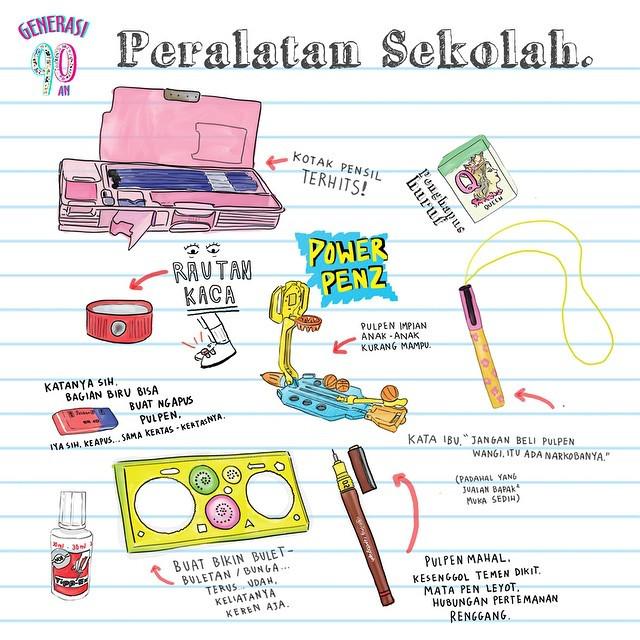 GENERASI
90
AN
Peralatan Sekolah.
KOTAK PENSIL
TERHITS!
Penghapus
Lurut
Q
QUEEN
RAUTAN
KACA
POWER
PENZ
PULPEN IMPIAN
ANAK-ANAK
KURANG MAMPU.
KATANYA SIH,
BAGIAN BIRU BISA
BUAT NGAPUS
PULPEN.
IYA SIH, KEAPUS... SAMA KERTAS-KERTASNYA.
KATA IBU, "JANGAN BELI PULPEN
WANGI, ITU ADA NARKOBANYA."
(PADAHAL YANG
JUALAN BAPAK²
MUKA SEDIH)
BUAT BIKIN BULET-
BULETAN / BUNGA...
TERUS... UDAH,
KELIATANYA
KEREN AJA.
PULPEN MAHAL,
KESENGGOL TEMEN DIKIT.
MATA PEN LEYOT,
HUBUNGAN PERTEMANAN
RENGGANG.